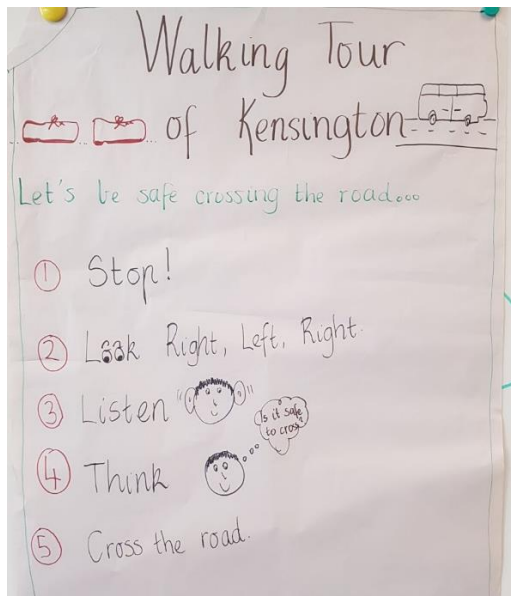 Walking Tour
of Kensington
Let's be safe crossing the road...
1 Stop!
2 Look Right, Left, Right.
3 Listen
Is it safe
to cross
4 Think
5 Cross the road.